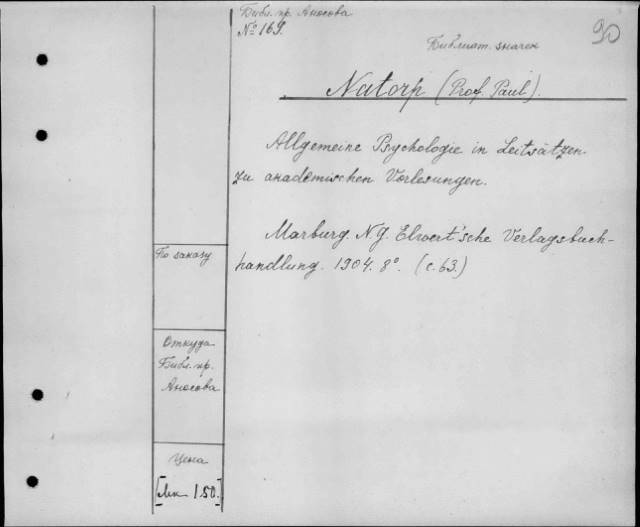 Библ. пр. Аносова
№ 169.
Библиат. значек
90
Natorp (Prof. Paul).
Allgemeine Psychologie in Leitsätzen
zu akademischen Vorlesungen.
Marburg. N. G. Elwert'sche Verlagsbuch-
handlung. 1904. 8°. (с. 63.)
По заказу
Откуда
Библ. пр.
Аносова
Цена
[Мк 1.50.]